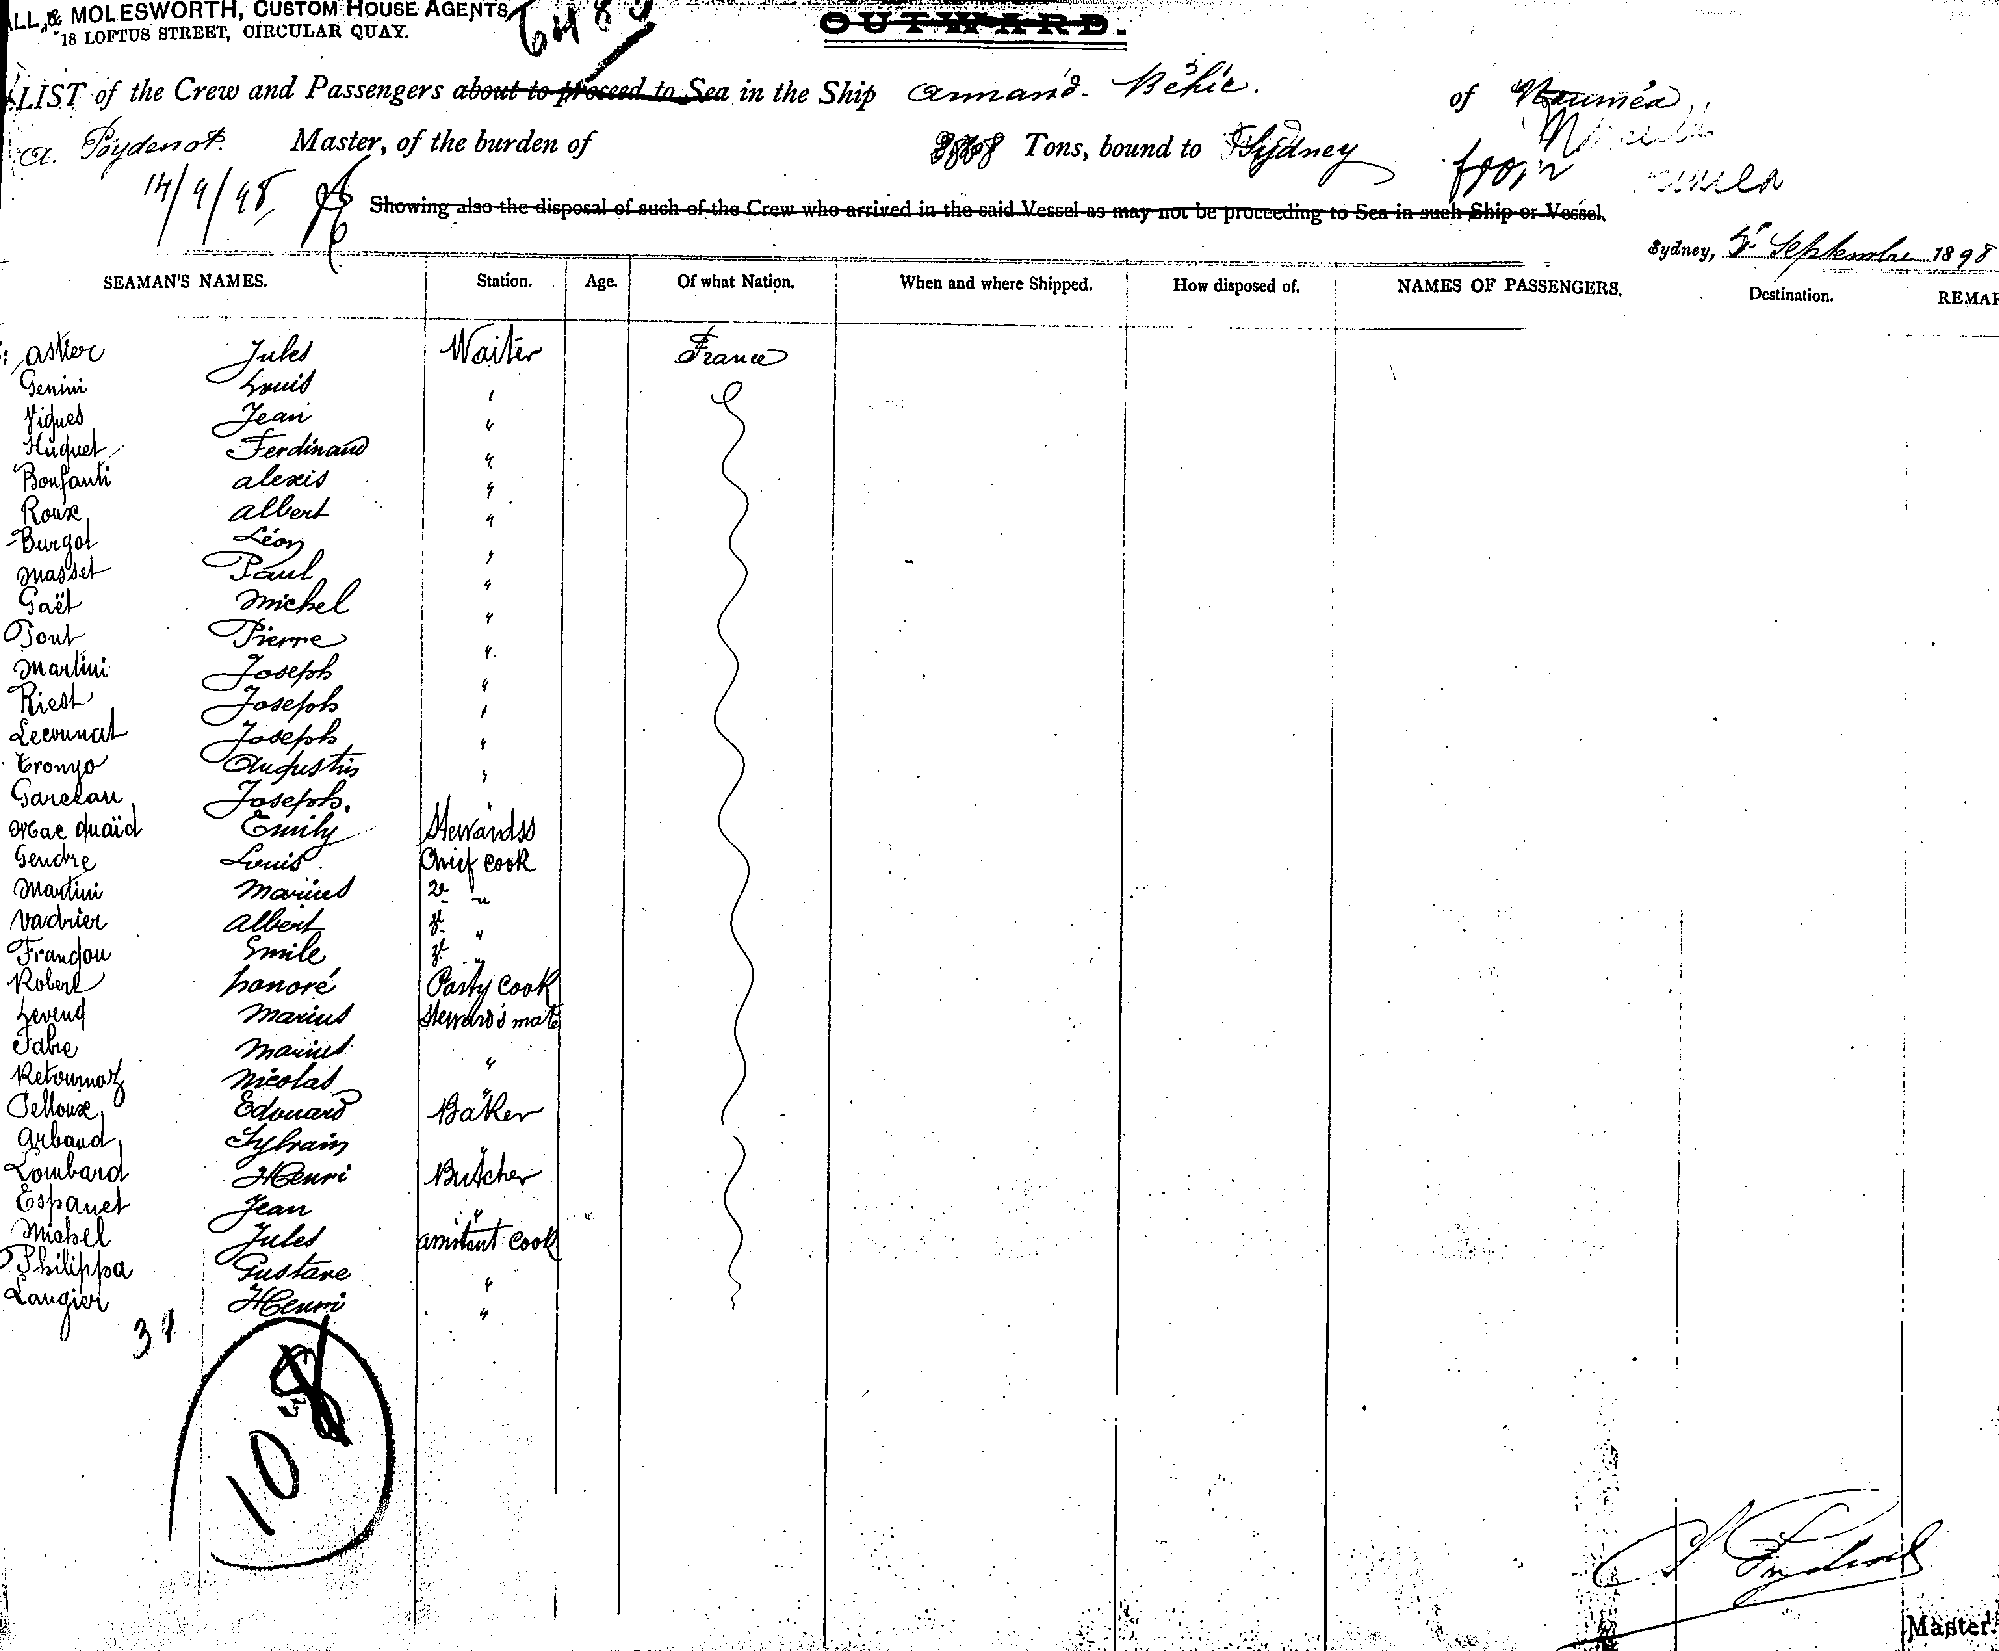 ALL, & MOLESWORTH, CUSTOM HOUSE AGENTS,
18 LOFTUS STREET, CIRCULAR QUAY.
OUTWARD.
LIST of the Crew and Passengers about to proceed to Sea in the Ship Armand. Béhic. of Nouméa
A. Poydenot. Master, of the burden of Tons, bound to Sydney
from
14/9/98
Showing also the disposal of such of the Crew who arrived in the said Vessel as may not be proceeding to Sea in such Ship or Vessel.
Sydney, 5 Septembre 1898
SEAMAN'S NAMES. Station. Age. Of what Nation. When and where Shipped. How disposed of. NAMES OF PASSENGERS. Destination. REMAR
Astier Jules Waiter France
Genini Louis "
Vigues Jean "
Huguet Ferdinand "
Bonfanti alexis "
Roux albert "
Burgot Léon "
Masset Paul "
Gaët Michel "
Pont Pierre "
Martini Joseph "
Riest Joseph "
Lecounat Joseph "
Tronyo Augustin "
Garelau Joseph. "
Mac Quaïd Emily Stewardss
Gendre Louis Chief cook
Martini Marius 2e "
Vadrier Albert 3e "
Frangou Emile 3e "
Robert honoré Pasty cook
Leveuq Marius Steward's mate
Fabre Marius "
Retournaz Nicolas "
Pelloux Edouard Baker
Arbaud Sylvain "
Lombard Henri Butcher
Espanet Jean "
Michel Jules assistent cook
Philippa Gustave "
Laugier Henri "
31
108
Master.